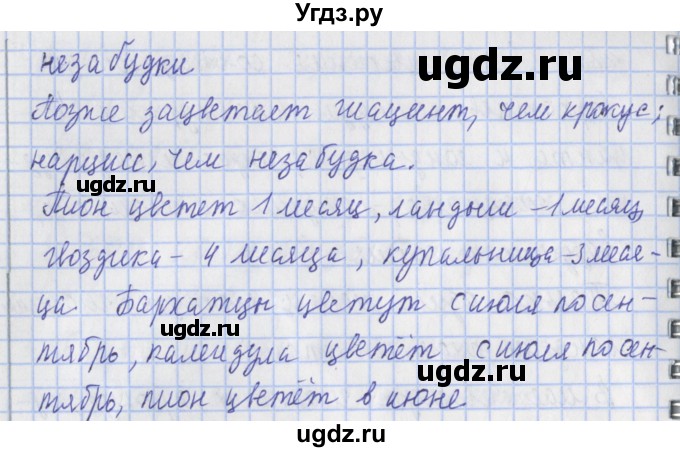 Угдз.ру
незабудки
ugdz.ru
Позже зацветает гиацинт, чем крокус;
нарцисс, чем незабудка.
ugdz.ru
Пион цветет 1 месяц, ландыш - 1 месяц,
гвоздика - 4 месяца, купальница - 3 меся-
ца. Бархатцы цветут с июля по сен-
ugdz.ru
тябрь, календула цветёт с июля по сен-
ugdz.ru
тябрь, пион цветёт в июне
ugdz.ru